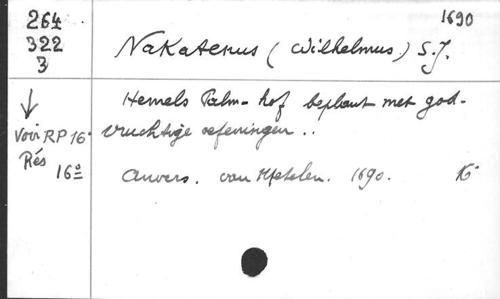 264
322
3
1690
Nakatenus (Wilhelmus) S.J.
↓
Voir RP 16°
Rés
16º
Hemels Palm-hof beplant met god-
vruchtige oefeningen..
Anvers. van Metelen. 1690. 16°